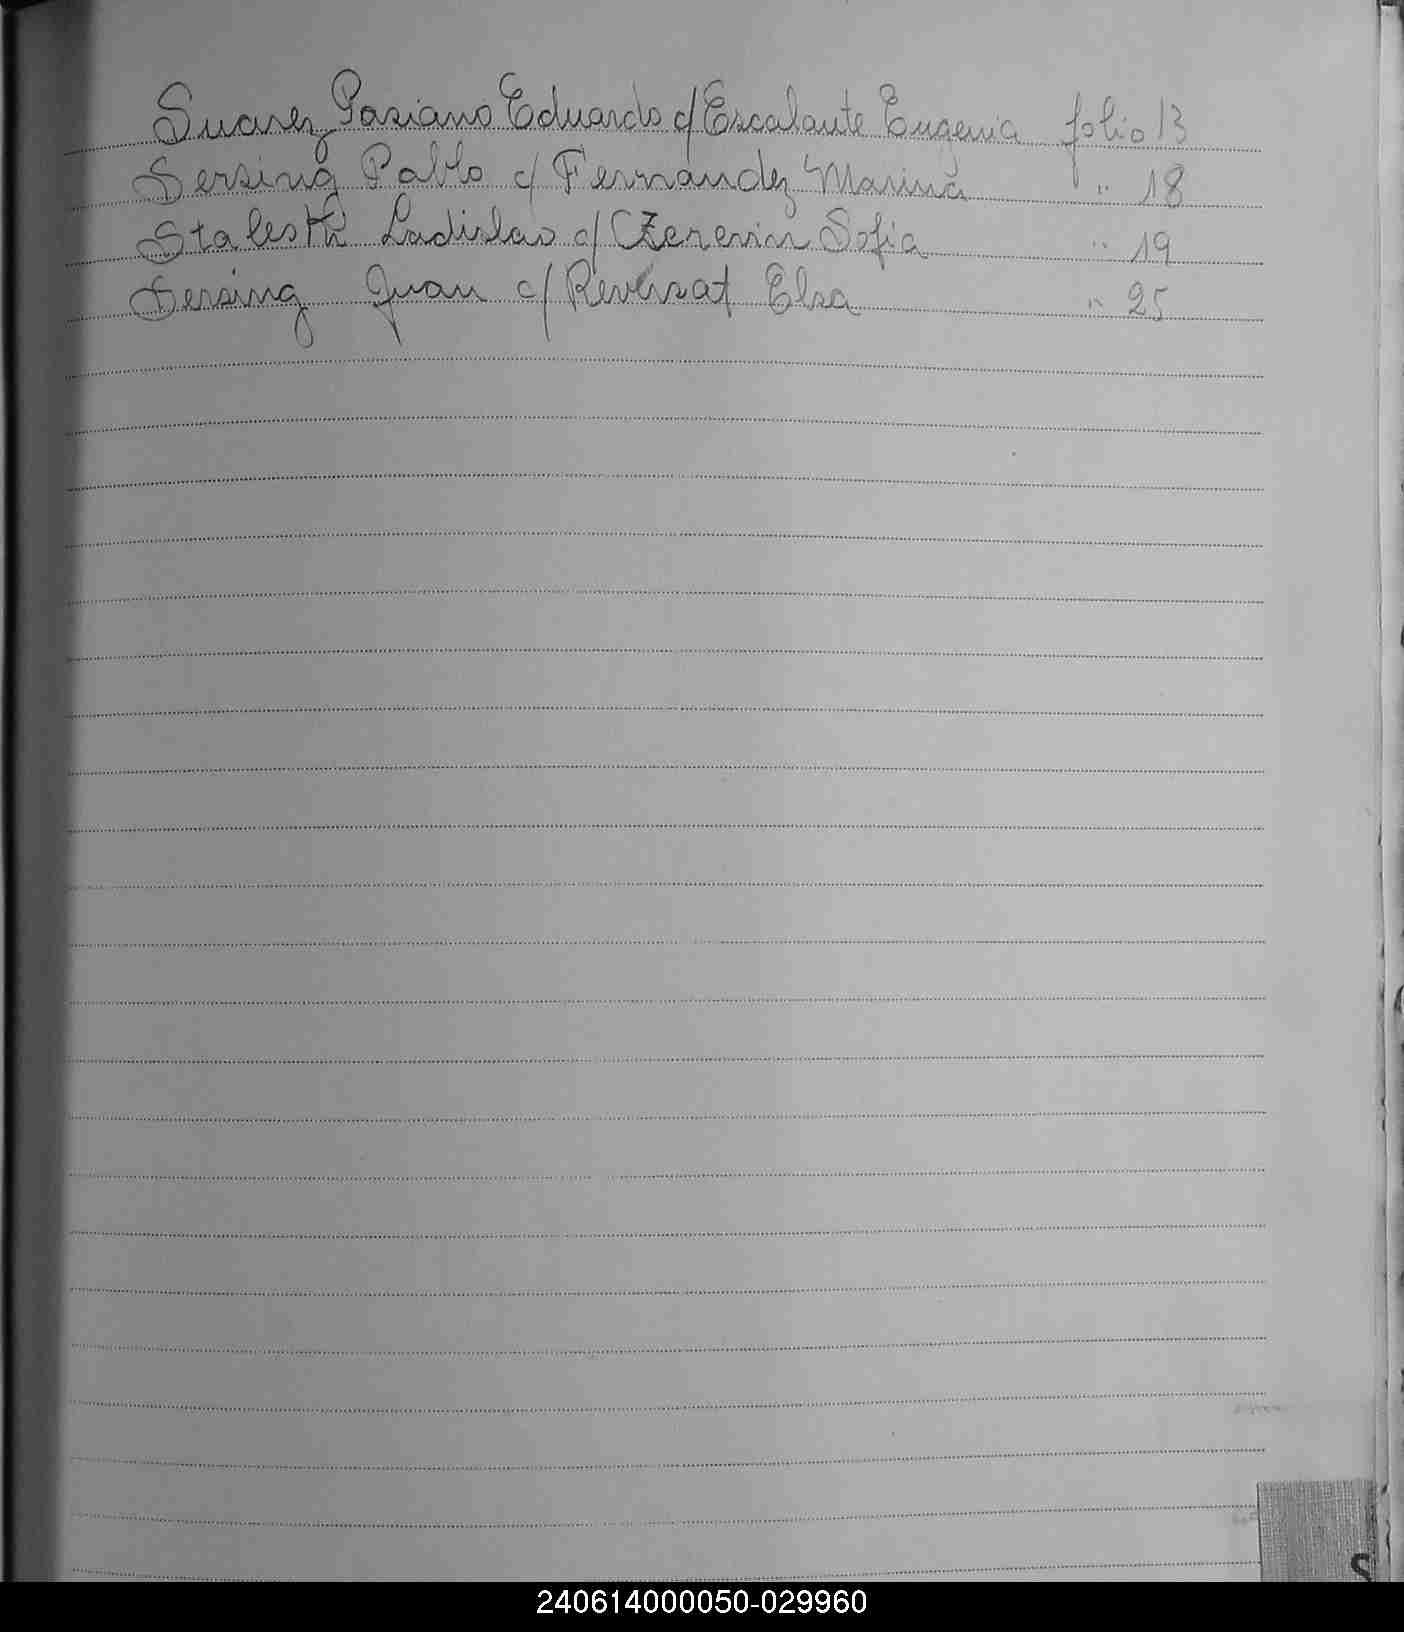 Suarez Pasiano Eduardo c/ Escalante Eugenia folio 13
Sersing Pablo c/ Fernandez Marina " 18
Staleski Ladislao c/ Czerevin Sofia " 19
Sersing Juan c/ Reversat Elsa " 25
S
240614000050-029960